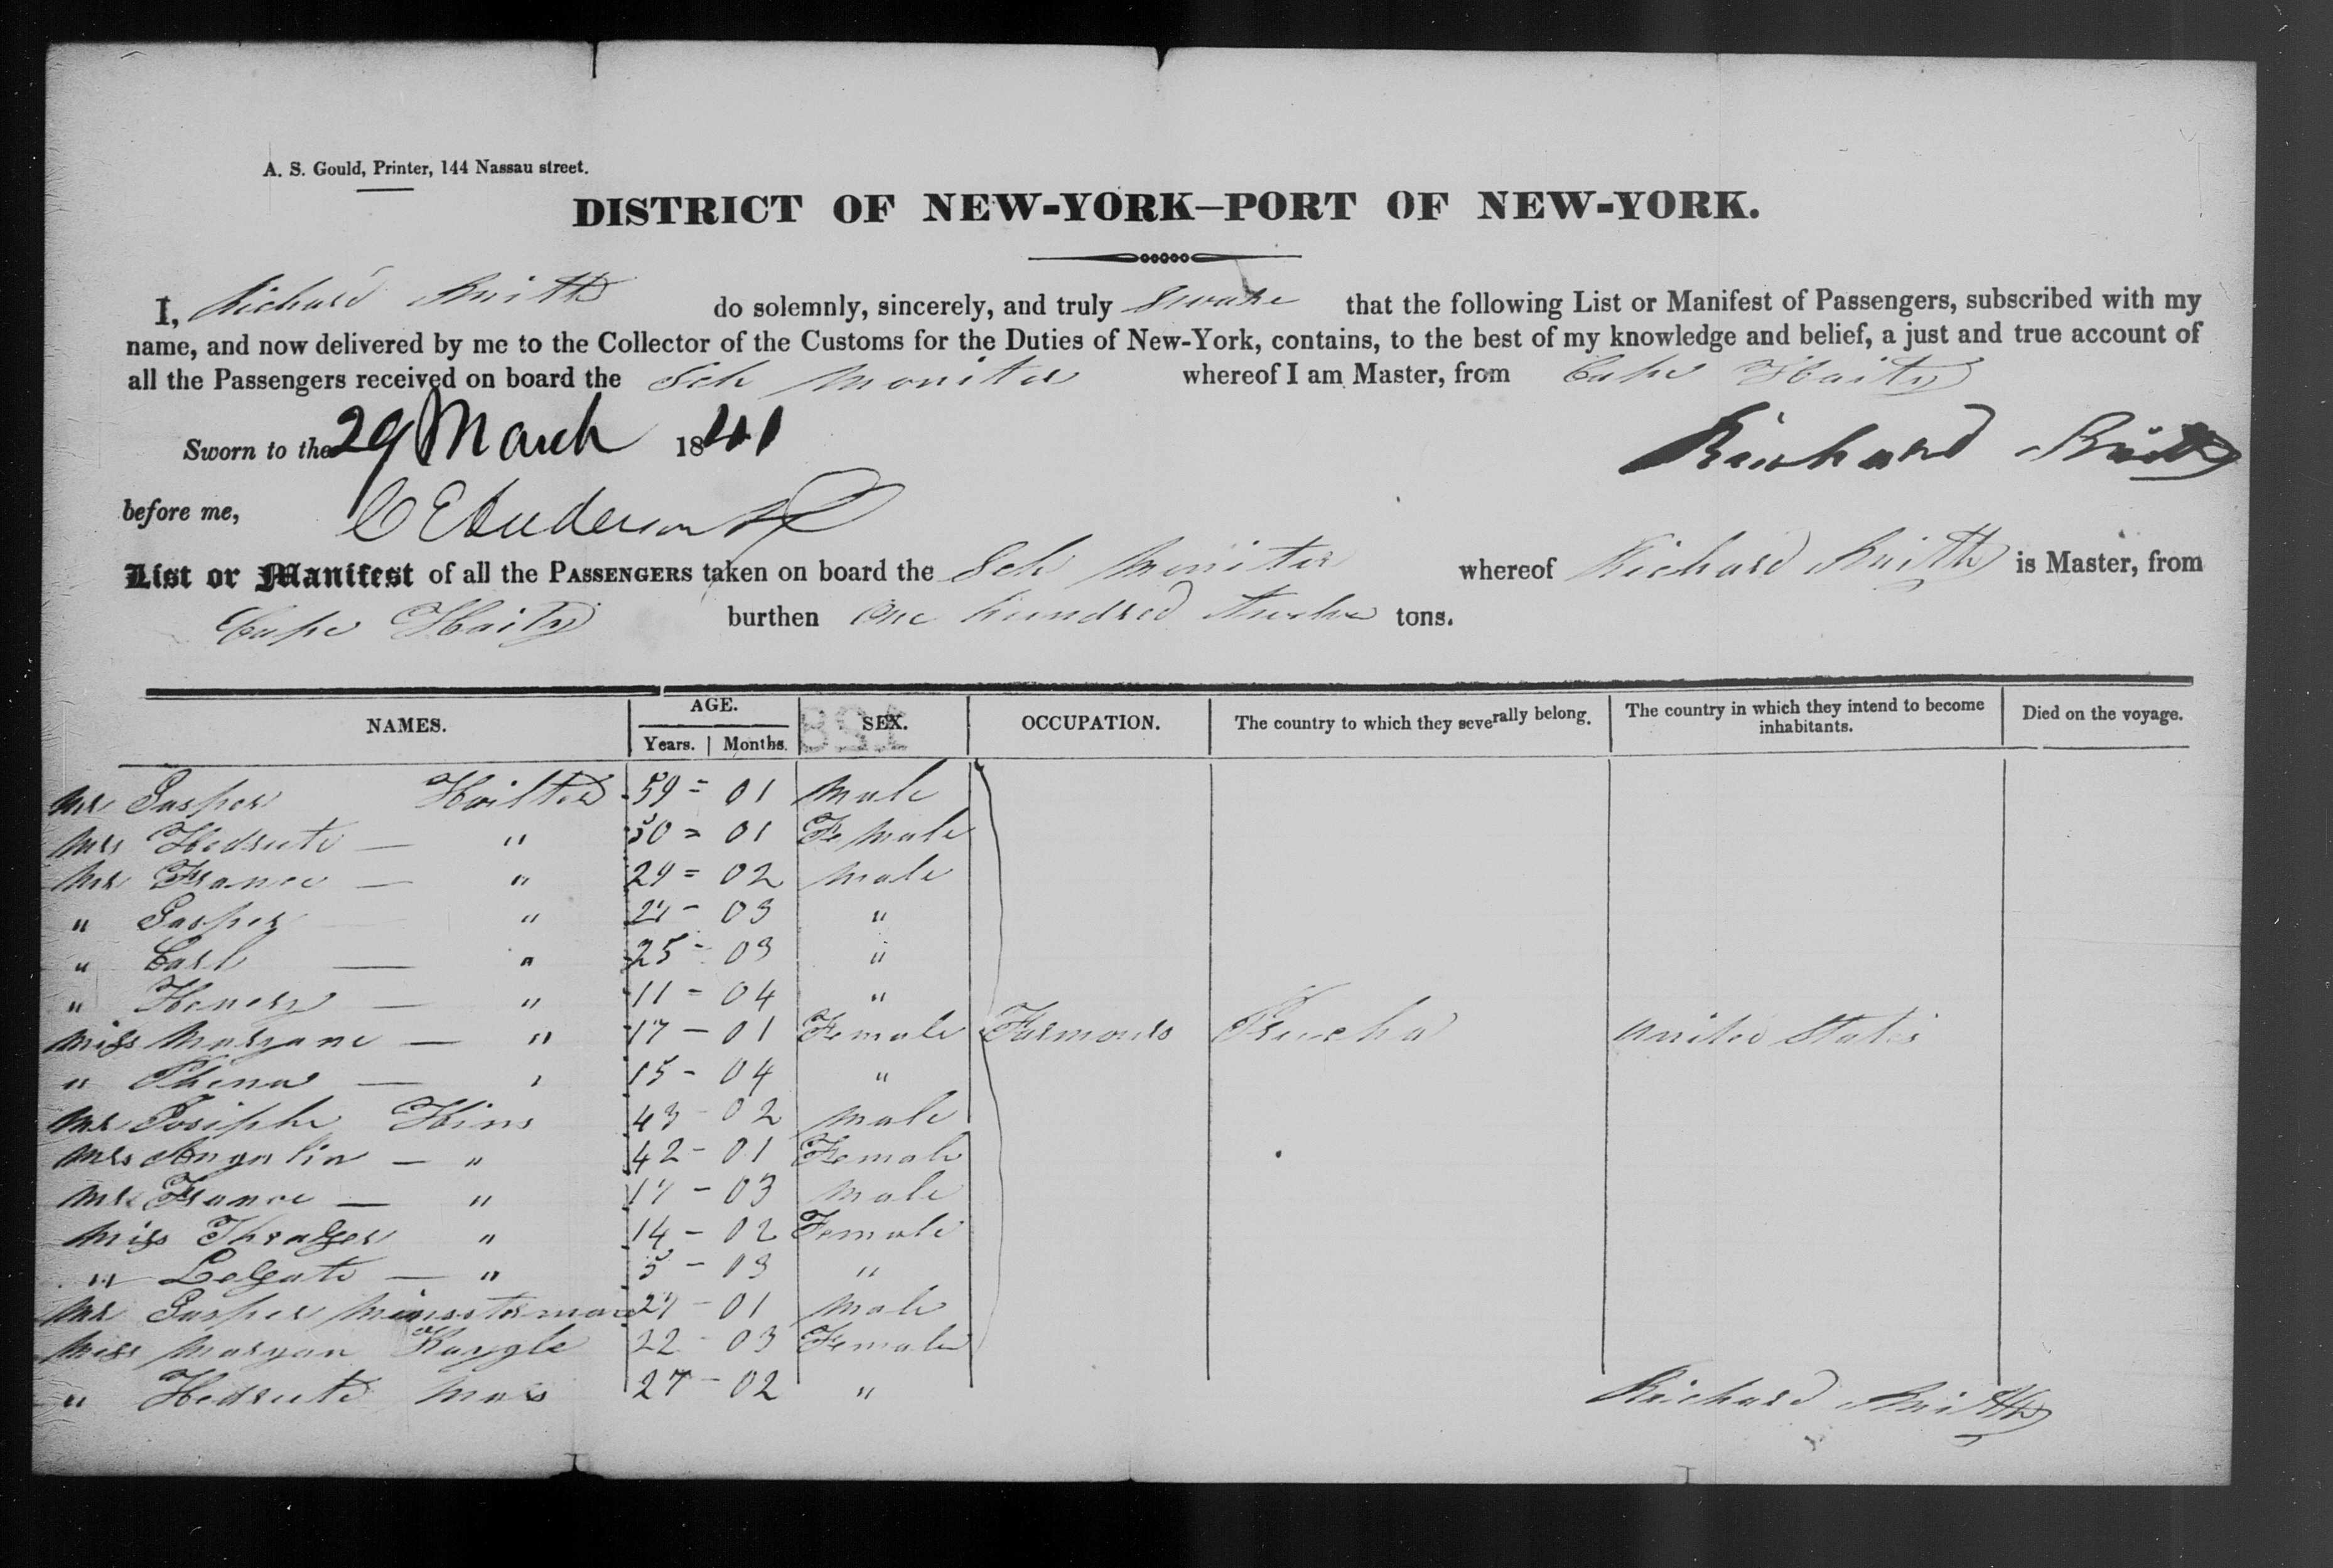 A. S. Gould, Printer, 144 Nassau street.
DISTRICT OF NEW-YORK—PORT OF NEW-YORK.
I, Richard Smith do solemnly, sincerely, and truly Sware that the following List or Manifest of Passengers, subscribed with my
name, and now delivered by me to the Collector of the Customs for the Duties of New-York, contains, to the best of my knowledge and belief, a just and true account of
all the Passengers received on board the Sch Monitor whereof I am Master, from Cape Haity
Sworn to the 29 March 1841 Richard Smith
before me, C E Anderson
List or Manifest of all the PASSENGERS taken on board the Sch Monitor whereof Richard Smith is Master, from
Cape Haity burthen One hundred Twelve tons.
NAMES. AGE. Years. Months. SEX. OCCUPATION. The country to which they severally belong. The country in which they intend to become inhabitants. Died on the voyage.
Mr Jasper 59 = 01 Male
Mrs Hedrute — " 50 = 01 Female
Mr France — " 29 = 02 Male
" Jasper " 27 - 03 "
" Carl — " 25 - 03 "
" Henery — " 11 - 04 "
Miss Maryane — " 17 - 01 Female Farmours United States
" Phena — " 15 - 04 "
Mr Josiphe Hins 43 - 02 Male
Mrs Angalin — " 42 - 01 Female
Mr France — " 17 - 03 Male
Miss " 14 - 02 Female
" — " 5 - 03 "
Mr Jasper 27 - 01 Male
Miss Maryan 22 - 03 Female
" Hedrute 27 - 02 "
Richard Smith